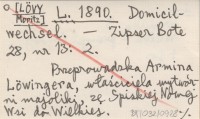 [LÖVY
Moritz] L. 1890. Domicil-
wechsel. — Zipser Bote
28, nr 13: 2.
Przeprowadzka Armina
Löwingera, właściciela wytwór-
ni majoliki ze Spiskiej Nowej
Wsi do Wielkiej.